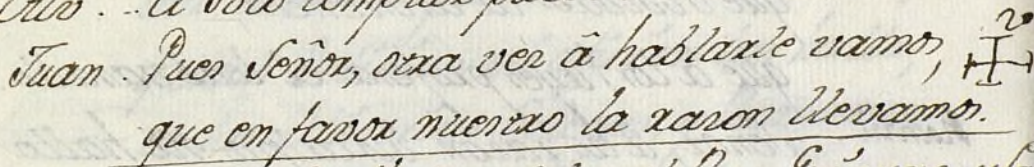 Juan. Pues Señor, otra vez â hablarle vamos,
que en favor nuestro la razon llevamos.